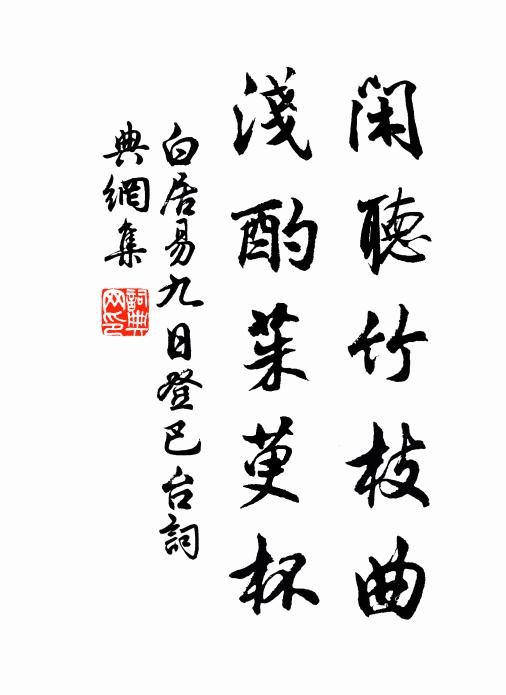 閑聽竹枝曲
淺酌茱萸杯
白居易九日登巴台詞
典網集
詞典
网印